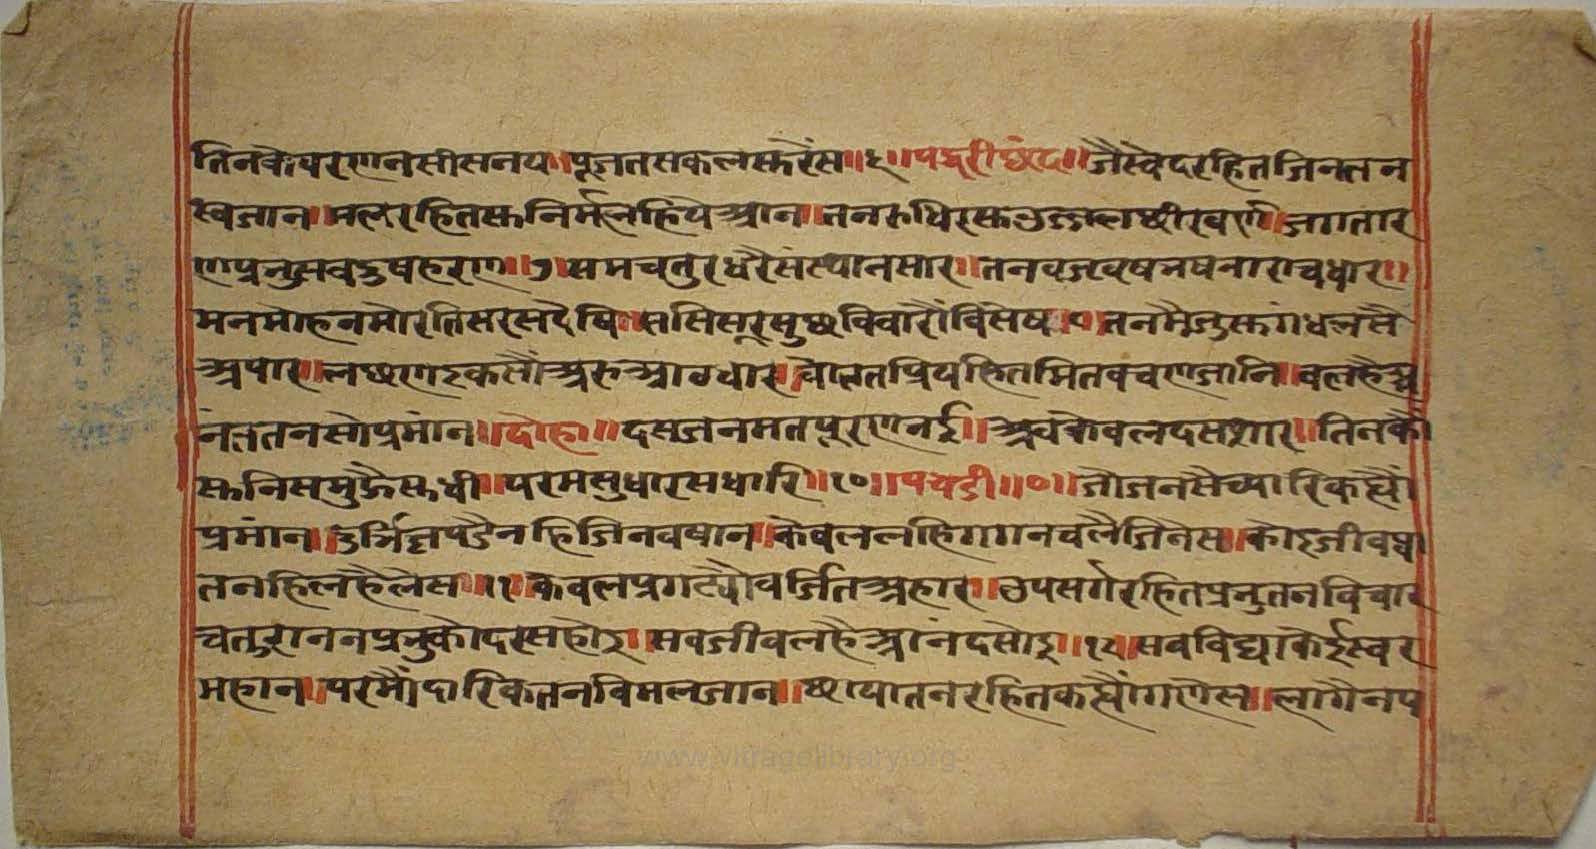 तिनकेचरणनसीसनय॥पूजतसकलसुरेस॥६॥पद्धरीछंद॥जैस्वेदरहितजिनतन
स्वजान॥मलरहितसुनिर्मलहियेआन॥तनरुधिरसुउज्जलछीरवर्ण॥जगतार
णप्रभुसवदुषहरण॥७॥समचतुरधरैसंस्थानसार॥तनवज्रवषभषनाराचधार॥
मनमोहनमोरतिसरसदेषि॥ससिसूरसुछविवारौंविसेष॥८॥तनमैजुसुगंधलसै
अपार॥लछणइकसौंअरुआठधार॥वोलतप्रियहितमितवचणजानि॥वलहैअ
नंततनसोप्रमांन॥दोहा॥दसजनमतपूरणभई॥अवकेवलदससार॥तिनकौं
सुनिसमुझैसुधी॥परमसुधारसधारि॥१०॥पधडी॥०॥जोजनसैच्यारिकह्यौं
प्रमांन॥दुर्भिक्षपडैनहिजिनवषान॥केवललहिगगनचलैजिनेस॥कोइजीवघा
तनहिलहैलेस॥११॥केवलप्रगट्यौवर्जितअहार॥उपसर्गरहितप्रभुतनविचार
चतुराननप्रभुकोदरसहोइ॥सवजीवलहैआनंदसोइ॥१२॥सवविद्याकेईस्वर
महान॥परमौंदारिकतनविमलजान॥छायातनरहितकह्यौंगणेस॥लागैनप
www.vitragelibrary.org